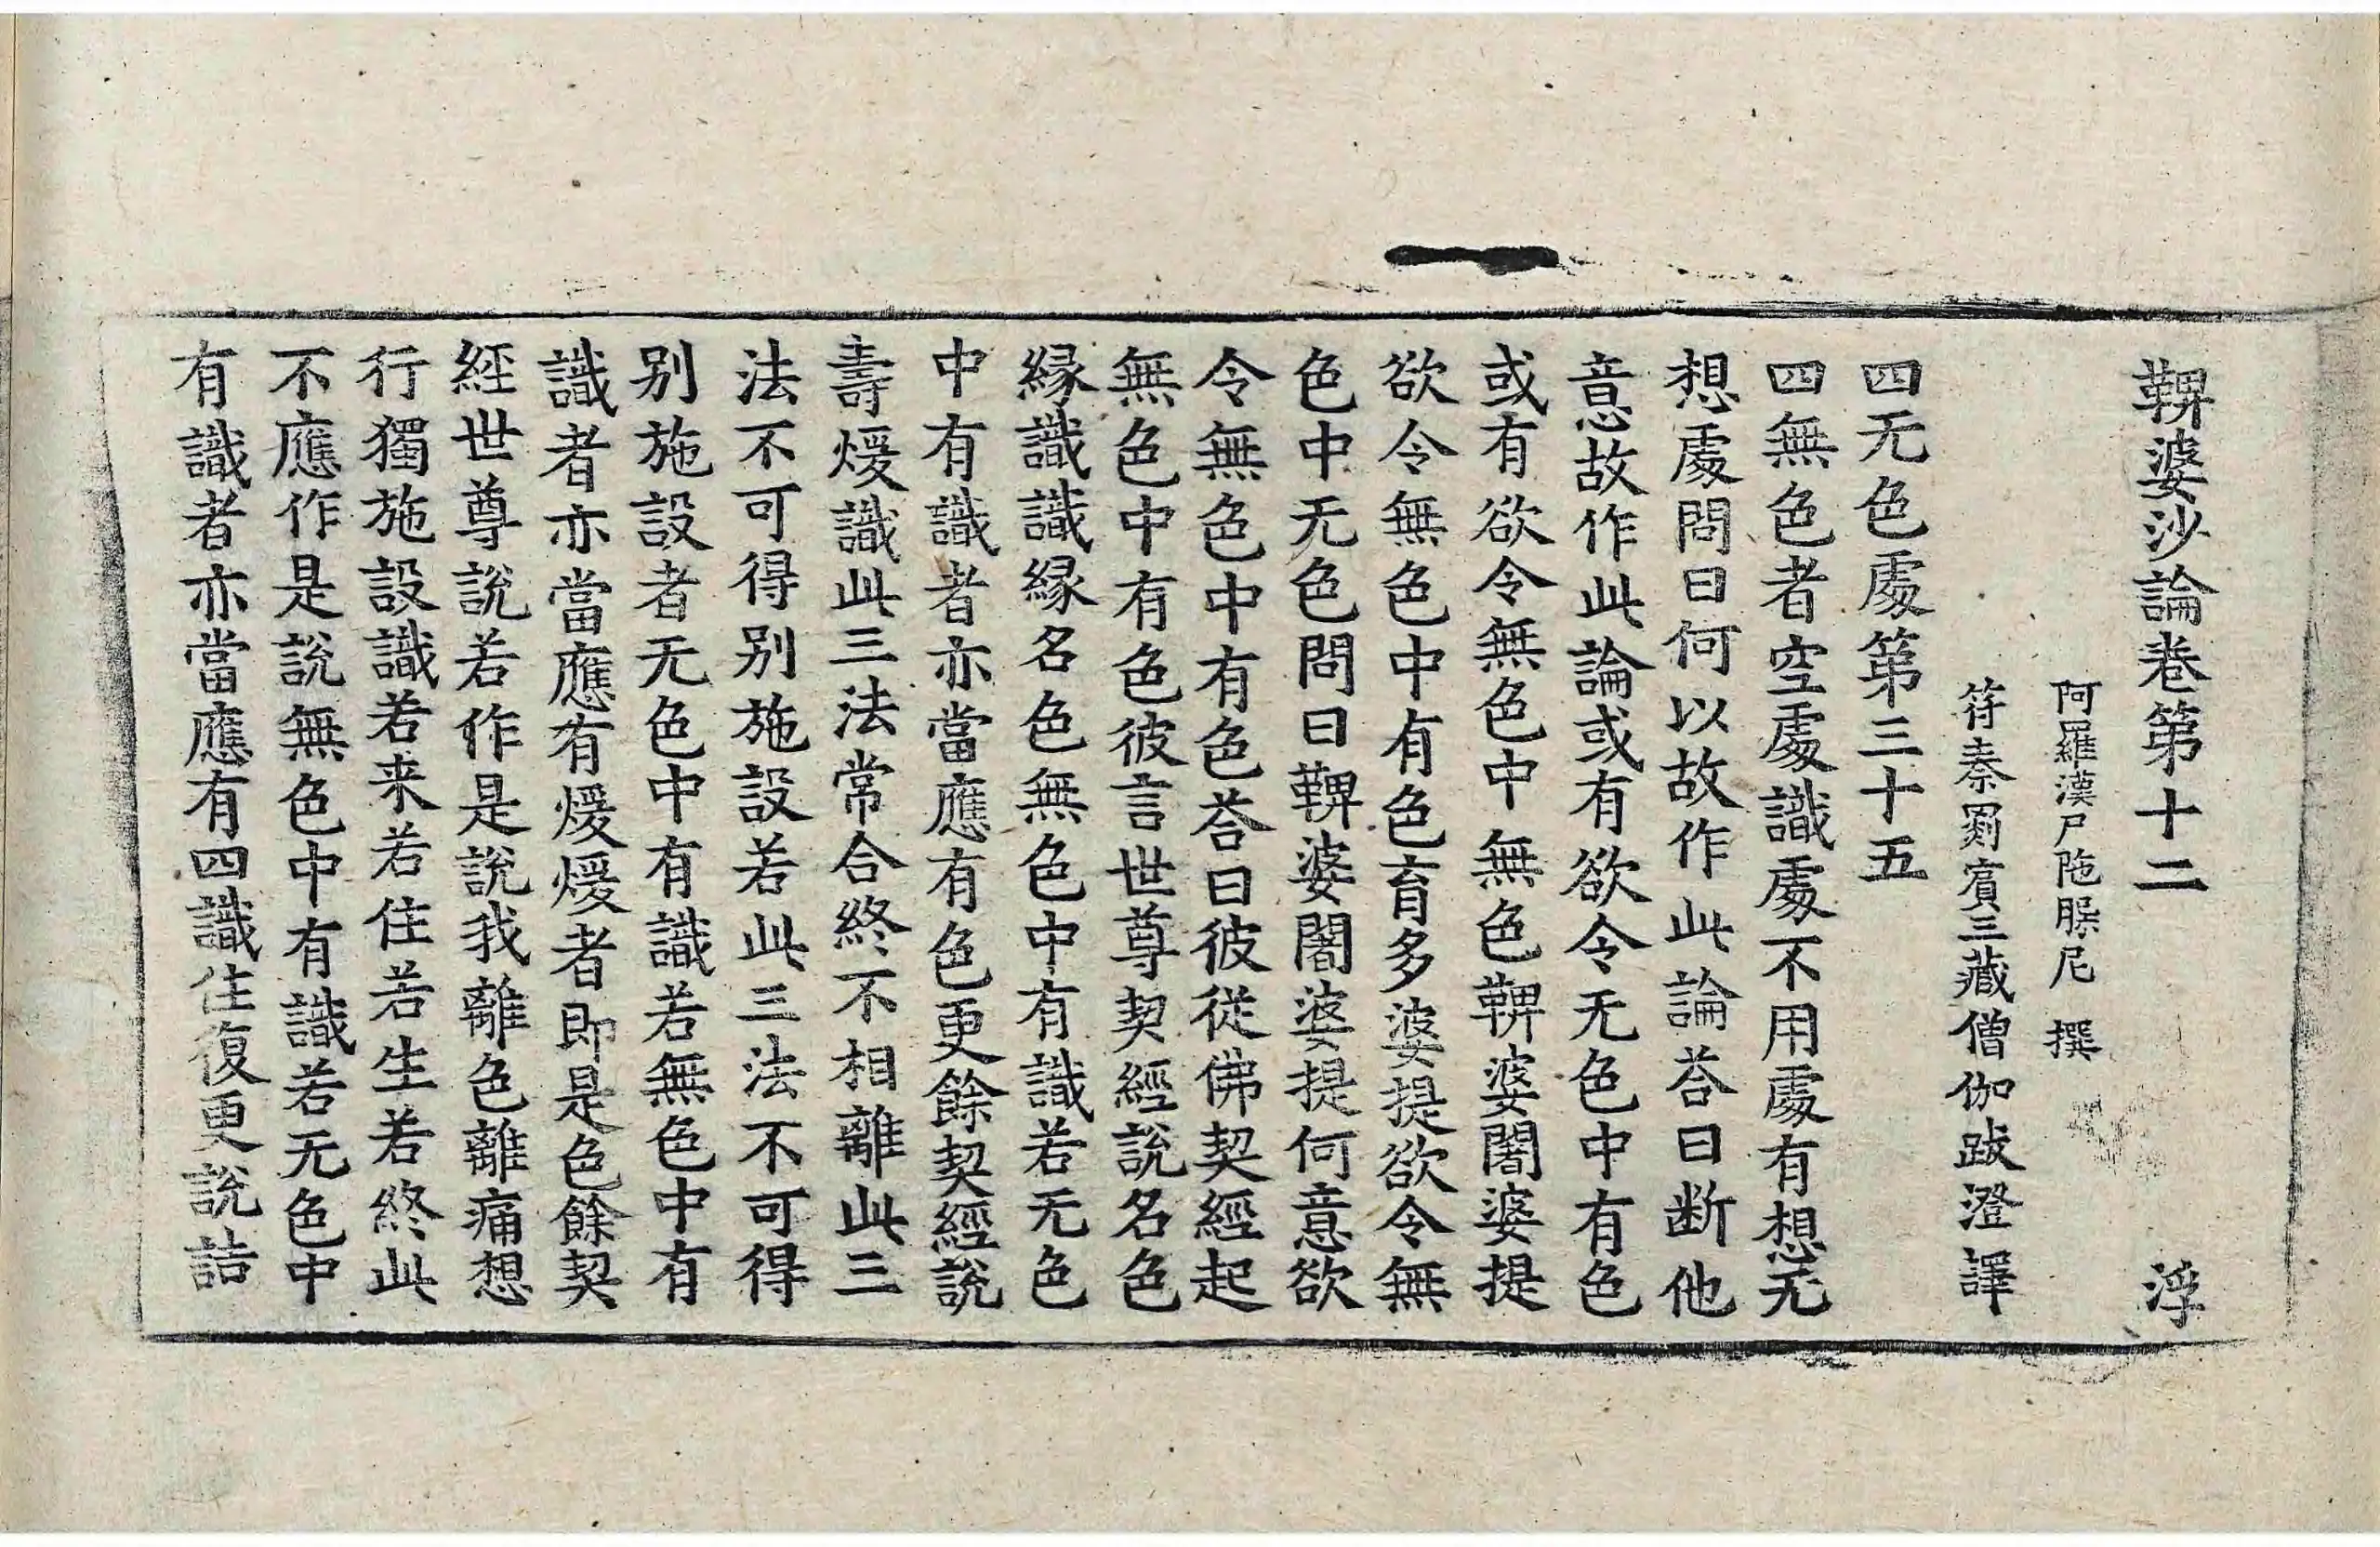 鞞婆沙論卷第十二 浮
阿羅漢尸陁槃尼 撰
符秦罽賓三藏僧伽跋澄譯
四无色處第三十五
四無色者空處識處不用處有想无
想處問曰何以故作此論荅曰斷他
意故作此論或有欲令无色中有色
或有欲令無色中無色鞞婆闍婆提
欲令無色中有色育多婆提欲令無
色中无色問曰鞞婆闍婆提何意欲
令無色中有色荅曰彼從佛契經起
無色中有色彼言世尊契經說名色
緣識識緣名色無色中有識若无色
中有識者亦當應有色更餘契經說
壽煖識此三法常合終不相離此三
法不可得別施設若此三法不可得
別施設者无色中有識若無色中有
識者亦當應有煖煖者即是色餘契
經世尊說若作是說我離色離痛想
行獨施設識若来若住若生若終此
不應作是說無色中有識若无色中
有識者亦當應有四識住復更說詰